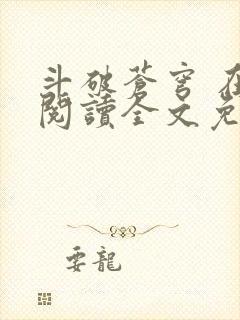 斗破蒼穹 在
閱讀全文免
要龍